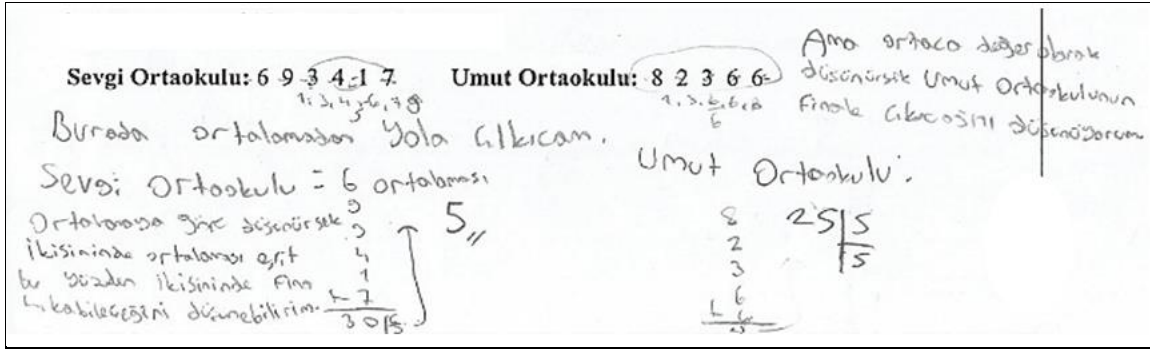 Sevgi Ortaokulu: 6 9 3 4 1 7 Umut Ortaokulu: 8 2 3 6 6
Ama ortaca değer olarak
düşünürsek Umut Ortaokulunun
Finale çıkacağını düşünüyorum.
Burada ortalamadan yola çıkıcam.
Sevgi Ortaokulu = 6 ortalaması
9
3
4
1
+ 7
30
5,,
Ortalamaya göre düşünürsek
ikisininde ortalaması eşit
bu yüzden ikisininde Fina
çıkabileceğini düşünebilirim.
Umut Ortaokulu:
8
2
3
6
+ 6
25 5
5